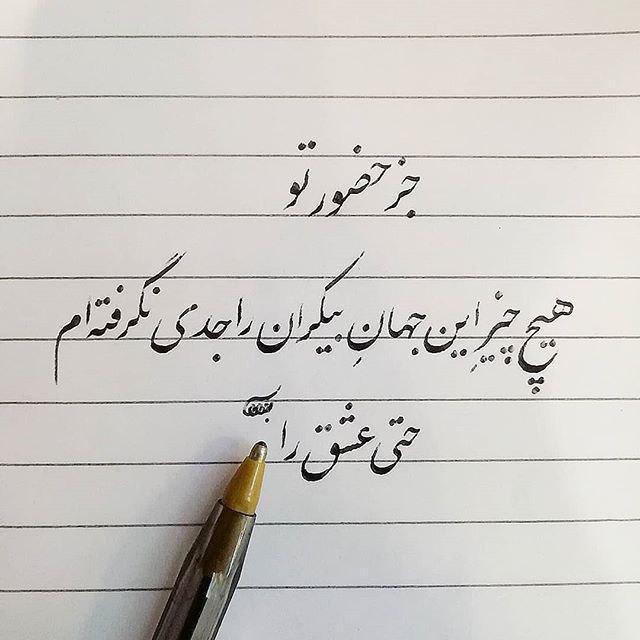 جز حضور تو
هیچ چیزِ این جهانِ بیکران را جدی نگرفته ام
حتی عشق را